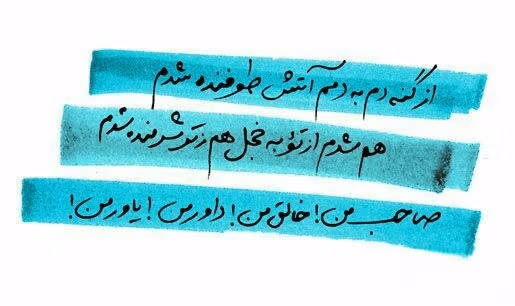 از گنه دم به دمم آتش طوفنده شدم
هم شدم از تو به خجل هم ز تو شرمنده شدم
صاحب من! خالق من! داور من! یاور من!